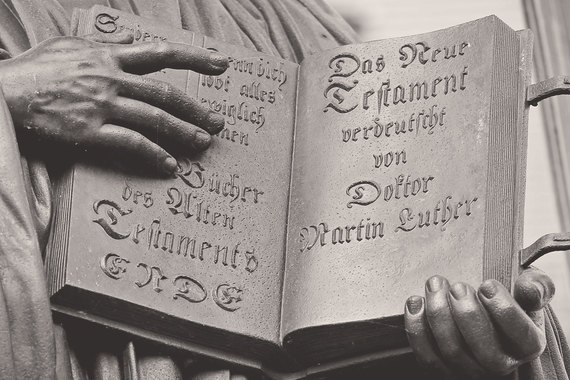 dich
lobt alles
ewiglich
Bücher
des Alten
Testaments
ENDE
Das Neue
Testament
verdeutscht
von
Doktor
Martin Luther